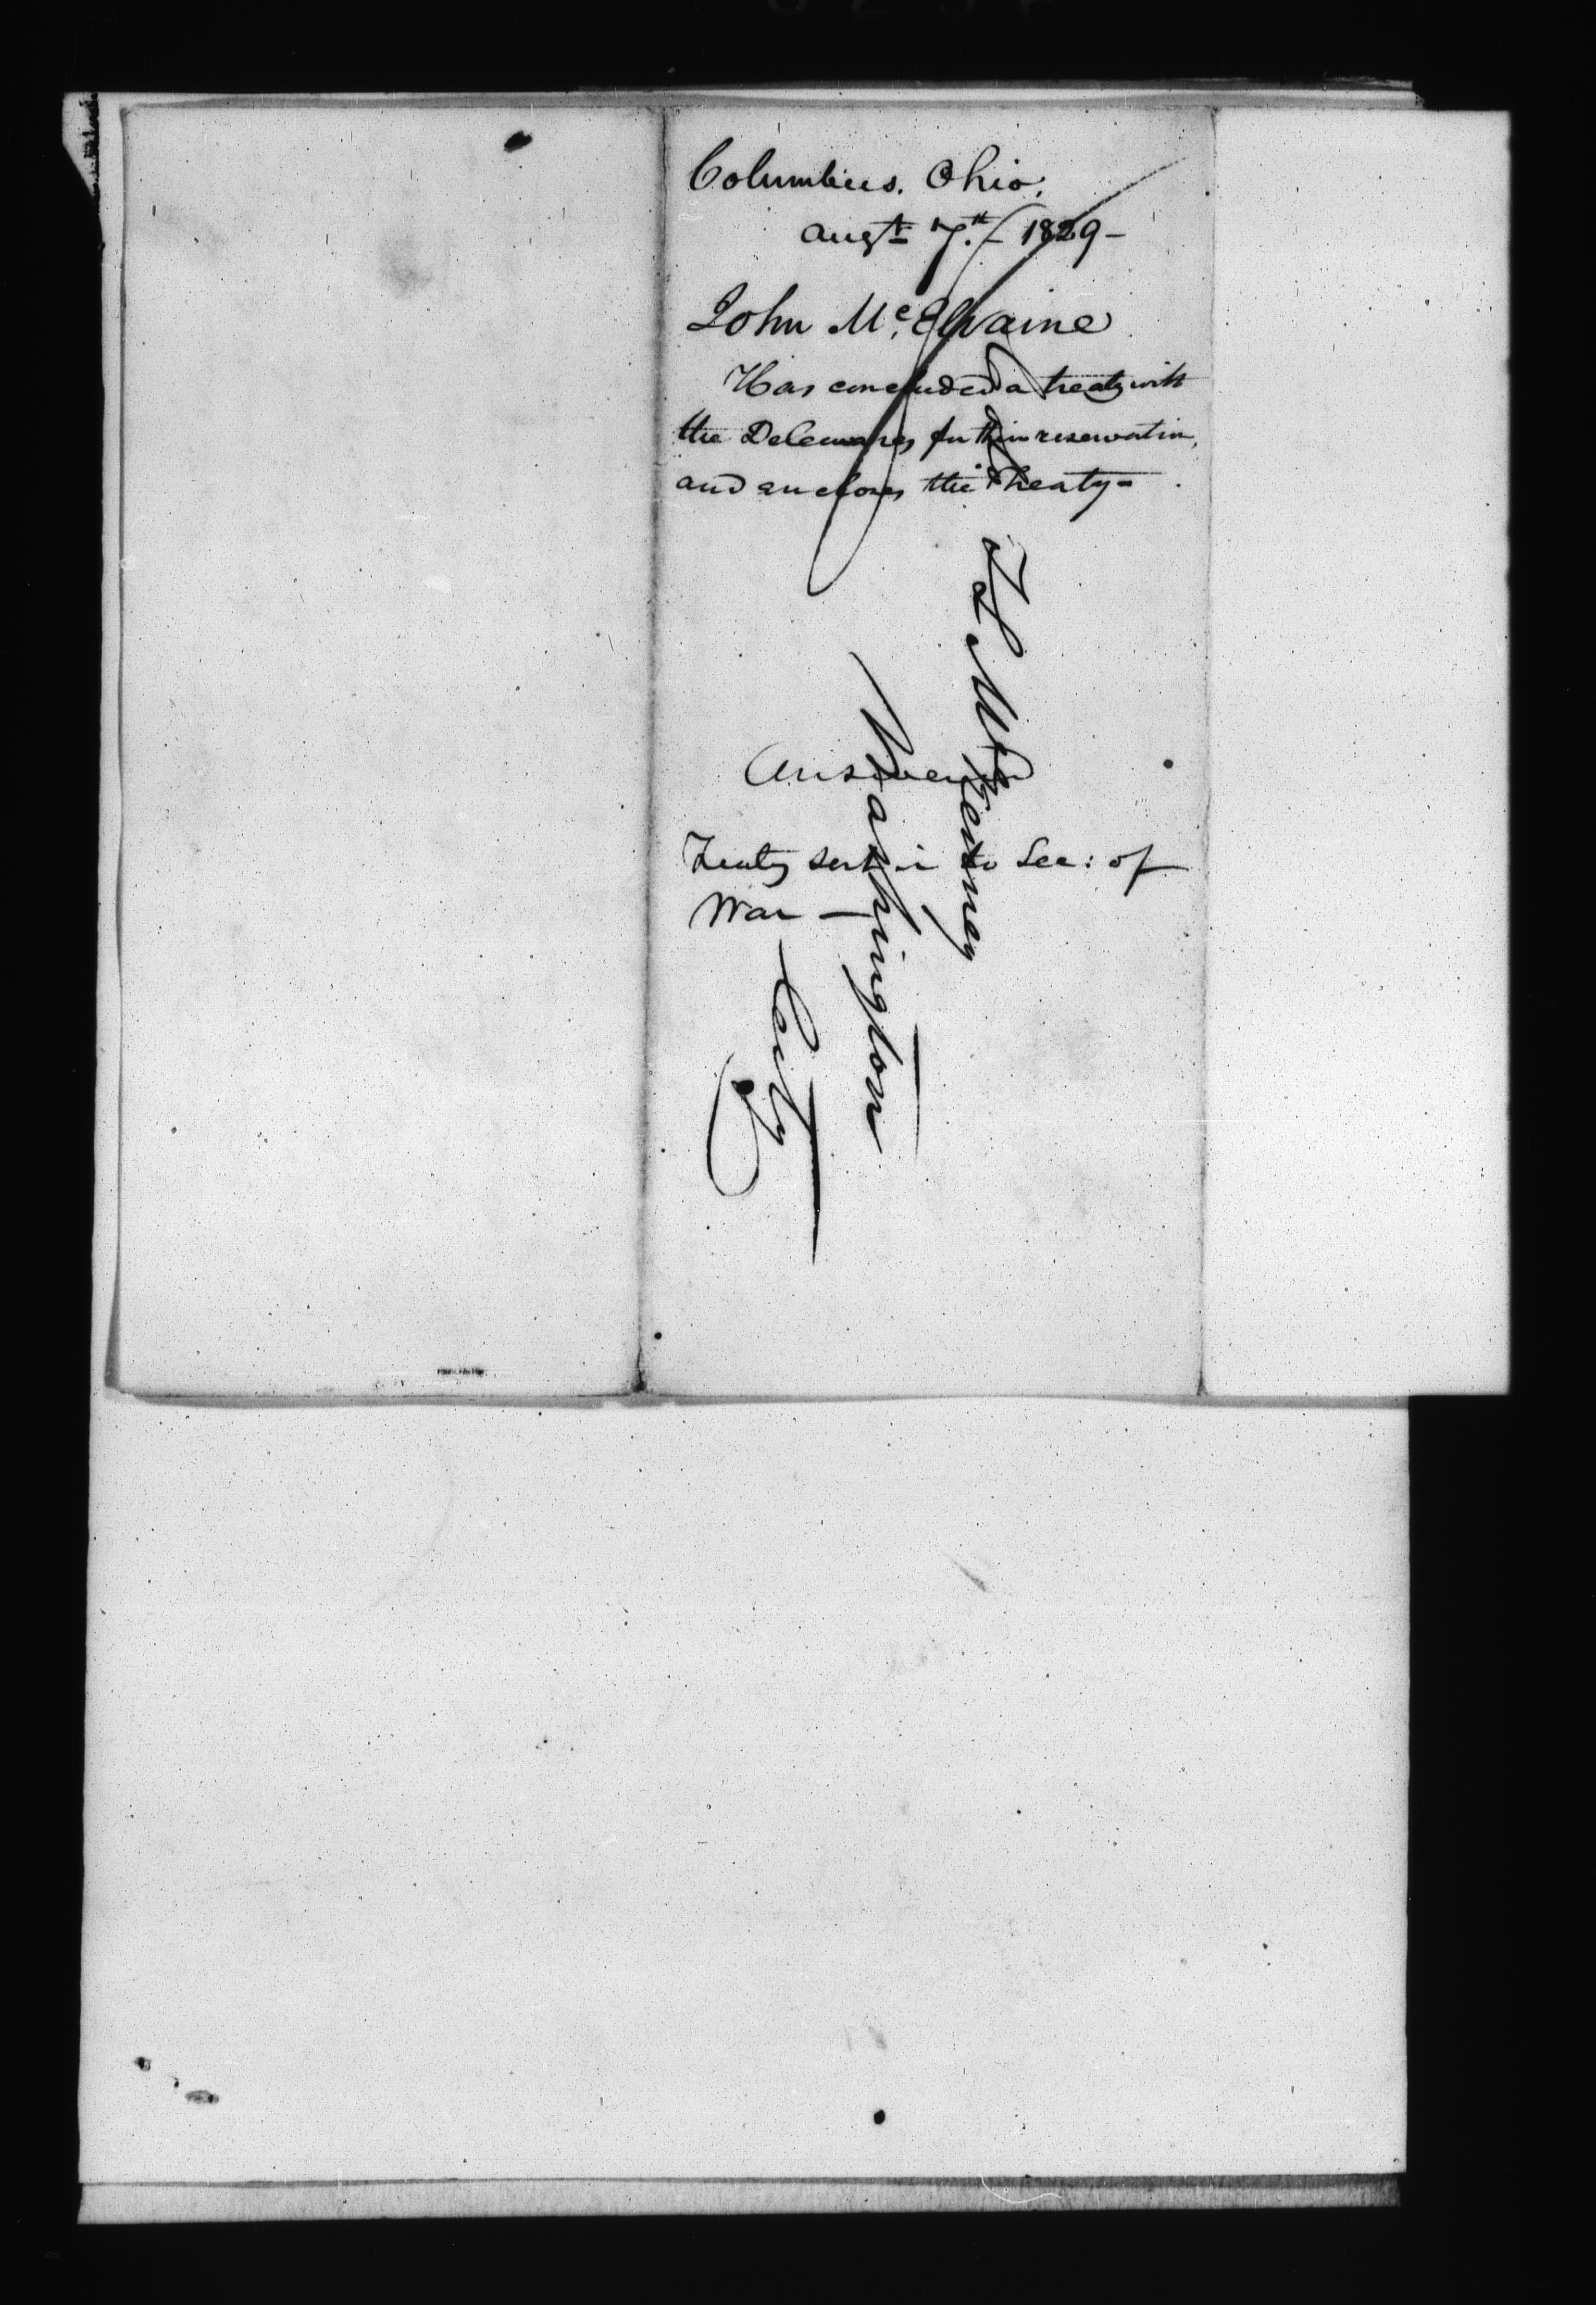 Columbus. Ohio.
Augt. 7th. 1829 –
John McElvaine
Has concluded a treaty with
the Delawares for their reservation,
and encloses the Treaty –
Answered
Treaty sent in to Sec: of
War –
T L McKenney
Washington
City